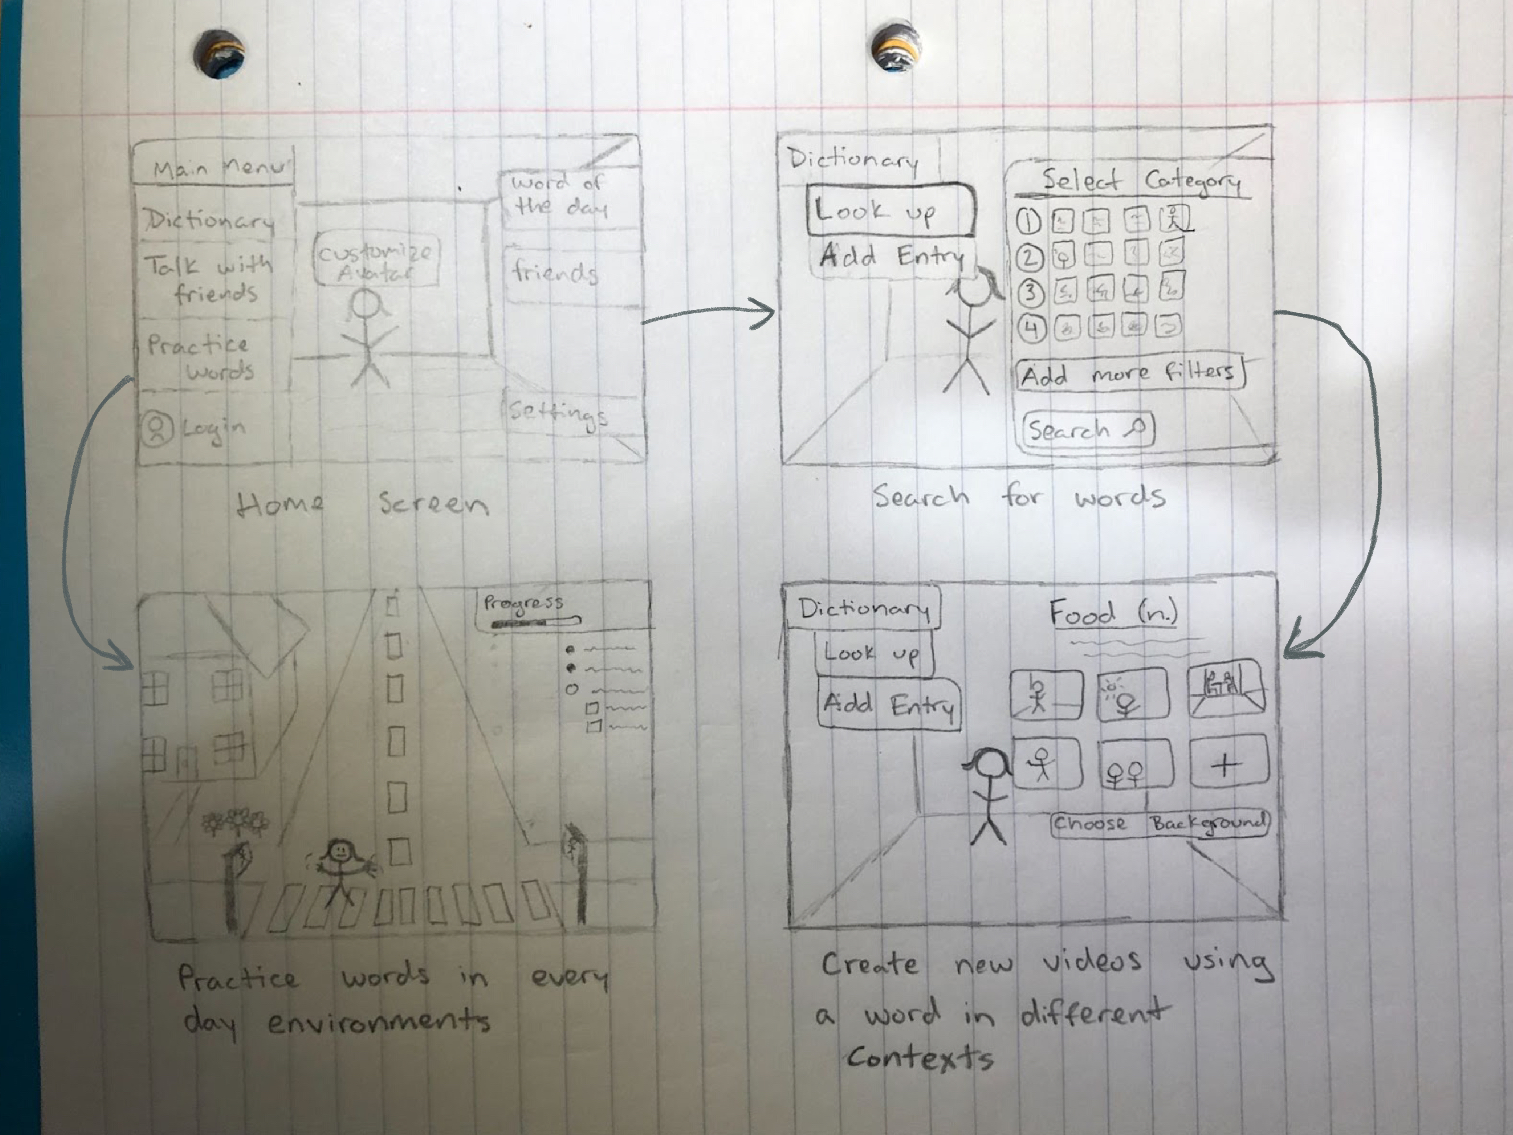 Main Menu
Dictionary
Talk with
friends
Practice
words
Login
customize
Avatar
word of
the day
friends
Settings
Home Screen
Dictionary
Look up
Add Entry
Select Category
1
2
3
4
Add more filters
Search
Search for words
Progress
Practice words in every
day environments
Dictionary
Look up
Add Entry
Food (n.)
+
Choose Background
Create new videos using
a word in different
Contexts